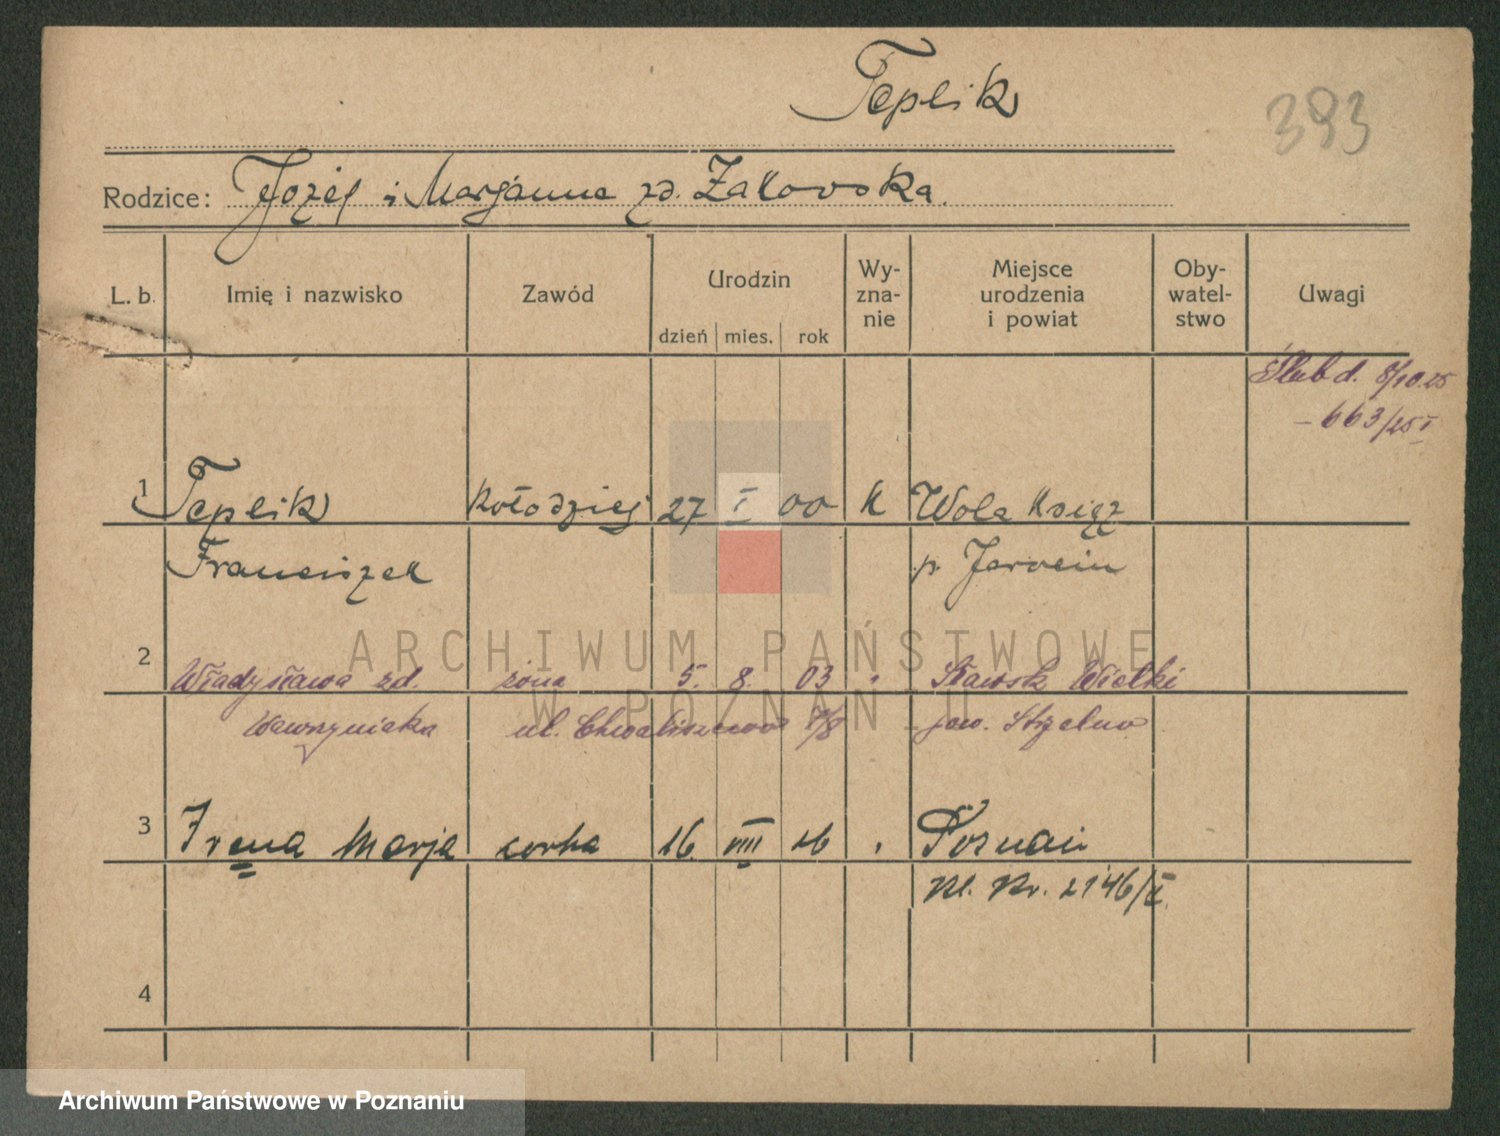 Teplik
393
Rodzice: Józef i Marjanna zd. Zakowska.
L. b. Imię i nazwisko Zawód Urodzin dzień mies. rok Wy-zna-nie Miejsce urodzenia i powiat Oby-watel-stwo Uwagi
Ślub d. 8/10.25
– 663/25 I
1 Teplik kołodziej 27 I 00 k Wola Książ
Franciszek p. Jarocin
ARCHIWUM PAŃSTWOWE
2 Władysława zd. żona 5. 8. 03 " Sławsk Wielki
W POZNANIU
Wawrzyniaka ul. Chwaliszewo 7/8 pow. Strzelno
3 Irena Marja corka 16. VIII 26 " Poznań
Kl. Nr. 2146/II
4
Archiwum Państwowe w Poznaniu